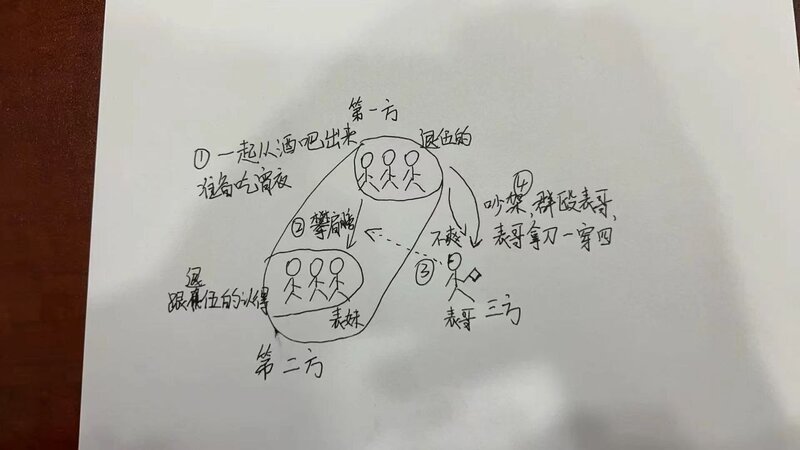 第一方
① 一起从酒吧出来
准备吃宵夜
退伍的
② 攀肩膀
不爽
③
④
吵架,群殴表哥,
表哥拿刀一穿四
退
跟伍的认得
表妹
表哥 三方
第二方